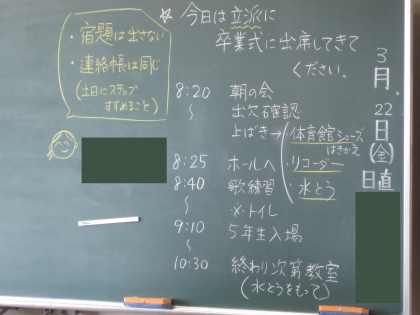 3月22日(金)
日直
☆ 今日は立派に
卒業式に出席してきて
ください。
・宿題は出さない
・連絡帳は同じ
(土日にステップ
すすめること)
8:20 朝の会
〜 出欠確認
上ばき→・体育館シューズ
はきかえ
8:25 ホールへ ・リコーダー
8:40 歌練習 ・水とう
〜 ※トイレ
9:10 5年生入場
〜
10:30 終わり次第教室
(水とうをもって)